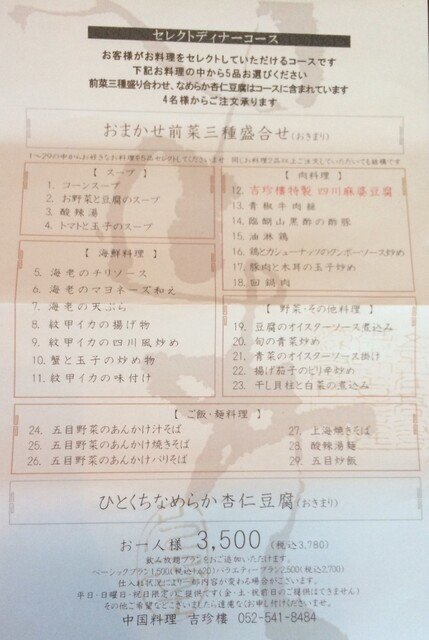 セレクトディナーコース
お客様がお料理をセレクトしていただけるコースです
下記お料理の中から5品お選びください
前菜三種盛り合わせ、なめらか杏仁豆腐はコースに含まれています
4名様からご注文承ります
おまかせ前菜三種盛合せ(おきまり)
1～29の中からお好きなお料理を5品セレクトしてくださいませ 同じお料理2品以上ご注文していただいても結構です
【 スープ 】
1. コーンスープ
2. お野菜と豆腐のスープ
3. 酸辣湯
4. トマトと玉子のスープ
【 海鮮料理 】
5. 海老のチリソース
6. 海老のマヨネーズ和え
7. 海老の天ぷら
8. 紋甲イカの揚げ物
9. 紋甲イカの四川風炒め
10. 蟹と玉子の炒め物
11. 紋甲イカの味付け
【 肉料理 】
12. 吉珍樓特製 四川麻婆豆腐
13. 青椒牛肉絲
14. 臨醐山黒酢の酢豚
15. 油淋鶏
16. 鶏とカシューナッツのクンポーソース炒め
17. 豚肉と木耳の玉子炒め
18. 回鍋肉
【 野菜・その他料理 】
19. 豆腐のオイスターソース煮込み
20. 旬の青菜炒め
21. 青菜のオイスターソース掛け
22. 揚げ茄子のピリ辛炒め
23. 干し貝柱と白菜の煮込み
【 ご飯・麺料理 】
24. 五目野菜のあんかけ汁そば
25. 五目野菜のあんかけ焼きそば
26. 五目野菜のあんかけバリそば
27. 上海焼きそば
28. 酸辣湯麺
29. 五目炒飯
ひとくちなめらか杏仁豆腐(おきまり)
お一人様 3,500 (税込3,780)
飲み放題プランをご追加いただけます。
ベーシックプラン1,500(税込1,620)バラエティープラン2,500(税込2,700)
仕入れ状況により一部内容が変わる場合がございます。
平日・日曜日・祝日限定のご提供です(金・土・祝前日のご提供はできません)
その他ご希望などございましたら遠慮なくお申し付けくださいませ。
中国料理 吉珍樓 052-541-8484